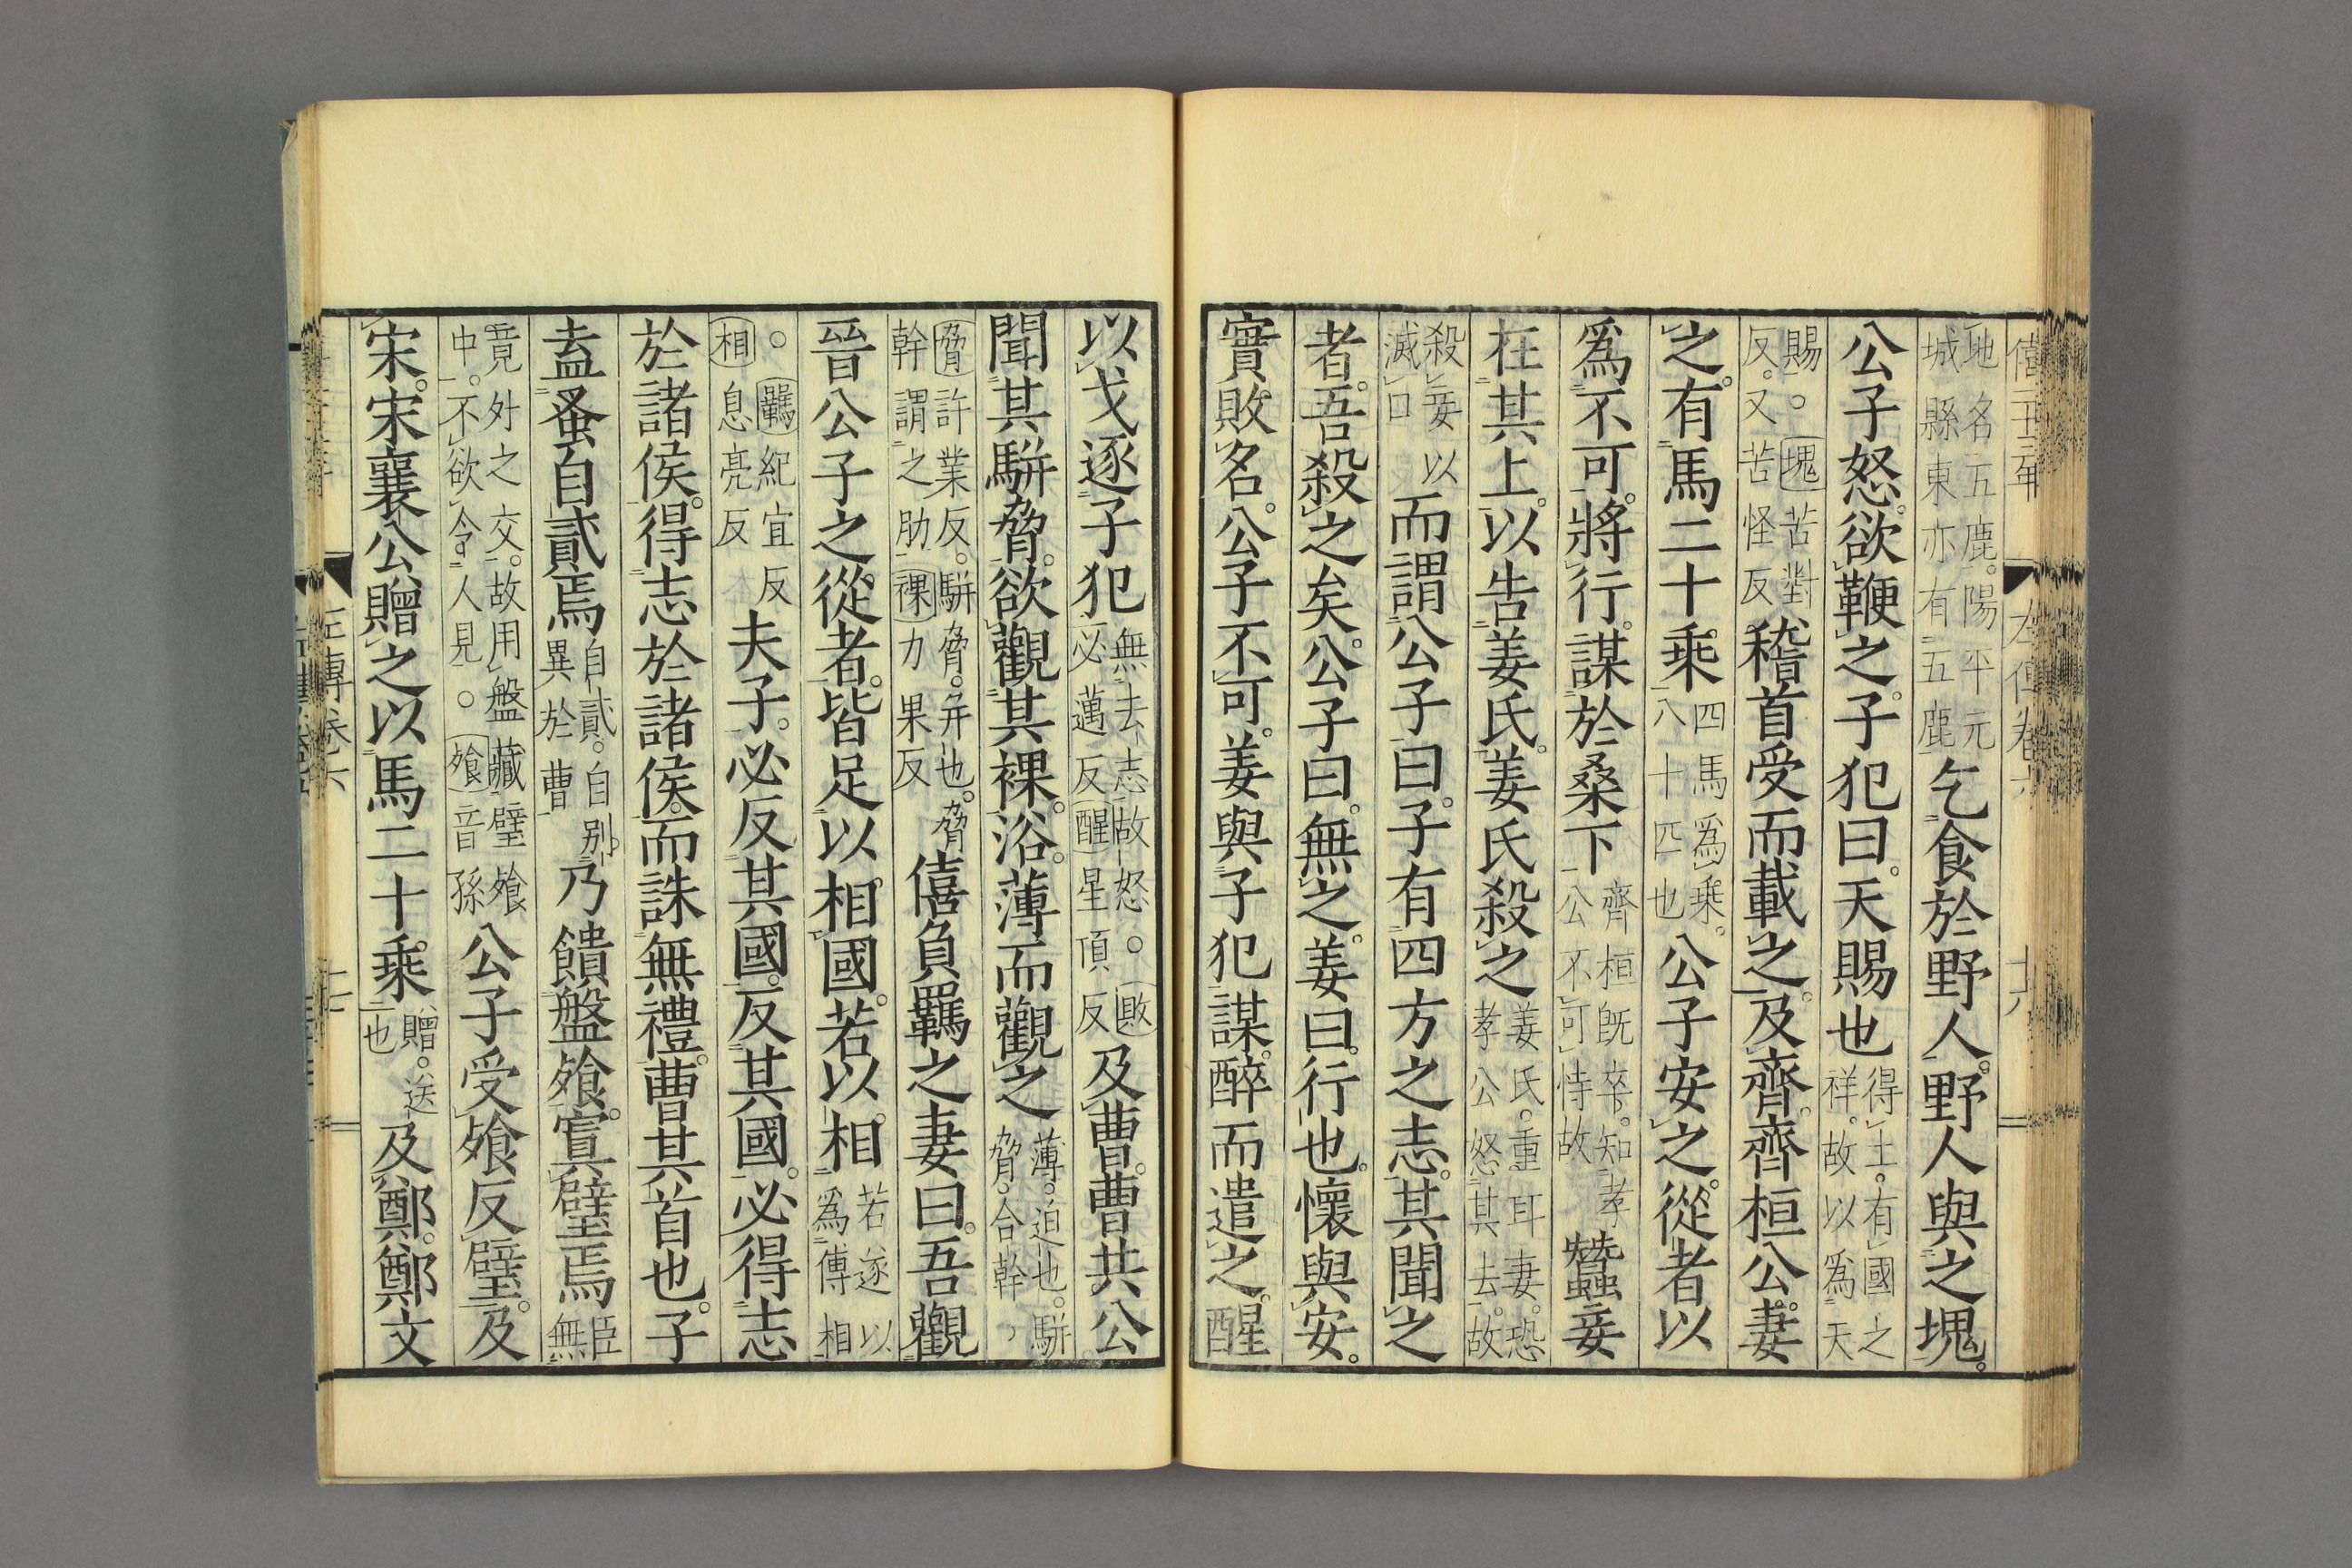 僖二十三年 左傳卷六 十六
地名五鹿。陽平元
城縣東亦有五鹿
乞食於野人。野人與之塊。
公子怒。欲鞭之。子犯曰。天賜也
得土。有國之
祥。故以爲天
賜。○塊苦對
反。又苦怪反
稽首受而載之。及齊。齊桓公。妻
之。有馬二十乘
四馬爲乘。
八十匹也
公子安之。從者以
爲不可。將行。謀於桑下
齊桓既卒。知孝
公不可恃故
蠶妾
在其上。以告姜氏。姜氏殺之
姜氏。重耳妻。恐
孝公怒其去。故
殺妾以
滅口
而謂公子曰。子有四方之志。其聞之
者。吾殺之矣。公子曰。無之。姜曰。行也。懷與安。
實敗名。公子不可。姜與子犯謀。醉而遣之。醒
以戈逐子犯
無去志故怒。○敗
必邁反醒星頂反
及曹。曹共公
聞其駢脅。欲觀其裸。浴。薄而觀之
薄。迫也。駢
脅。合幹、
脅許業反。駢脅。幷也。脅
幹謂之肋裸力果反
僖負羈之妻曰。吾觀
晉公子之從者。皆足以相國。若以相
若遂以
爲傅相
○羈紀宜反
相息亮反
夫子。必反其國。反其國。必得志
於諸侯。得志於諸侯。而誅無禮。曹其首也。子
盍蚤自貳焉
自貳。自别
異於曹
乃饋盤飧。寘璧焉
臣
無
竟外之交。故用盤藏璧飧
中。不欲令人見。○飧音孫
公子受飧反璧。及
宋。宋襄公贈之以馬二十乘
贈。送
也
及鄭。鄭文
左傳卷六